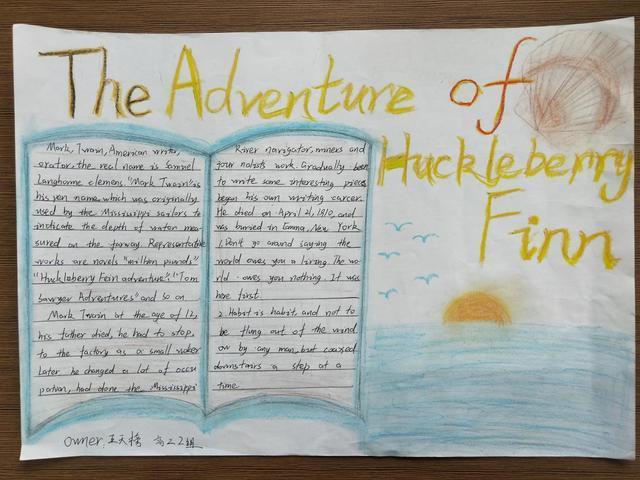 The Adventure of
Huckleberry
Finn
Mark, Twain, American writer,
orator, the real name is Samuel
Langhorne clemens. "Mark Twain" is
his pen name, which was originally
used by the Mississippi sailors to
indicate the depth of water mea-
sured on the fairway. Representative
works are novels "million pounds"
"Huckleberry Fein adventure", "Tom
Sawyer Adventures" and so on
Mark Twain at the age of 12,
his father died, he had to stop,
to the factory as a small
Later he changed a lot of occu
pation, had done the Mississippi
River navigator, miners and
jour nalists work. Gradually been
to write some interesting pieces
began his own writing career.
He died on April 21, 1910, and
was buried in Emma, New York
1. Don't go around saying the
world owes you a living. The wo-
rld owes you nothing. It was
here first.
2. Habit is habit, and not to
be flung out of the wind
ow by any man, but coaxed
downstairs a step at a
time
owner: 王天桥 高二2班